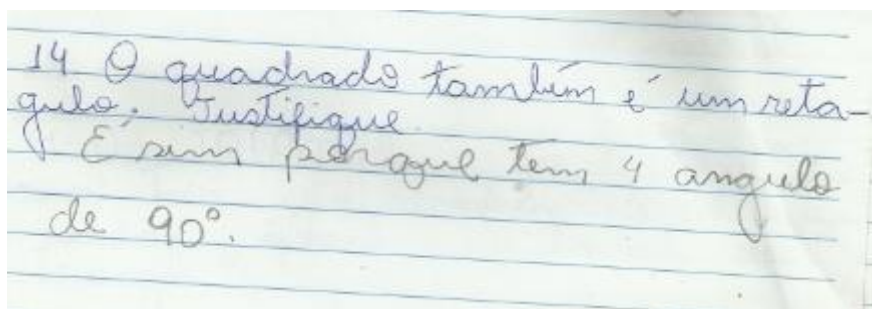 14 O quadrado também é um reta-
gulo. Justifique
É sim porque tem 4 angulo
de 90°.